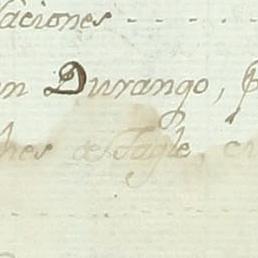 laciones - - - -
en Durango, p
ches de Tagle, c